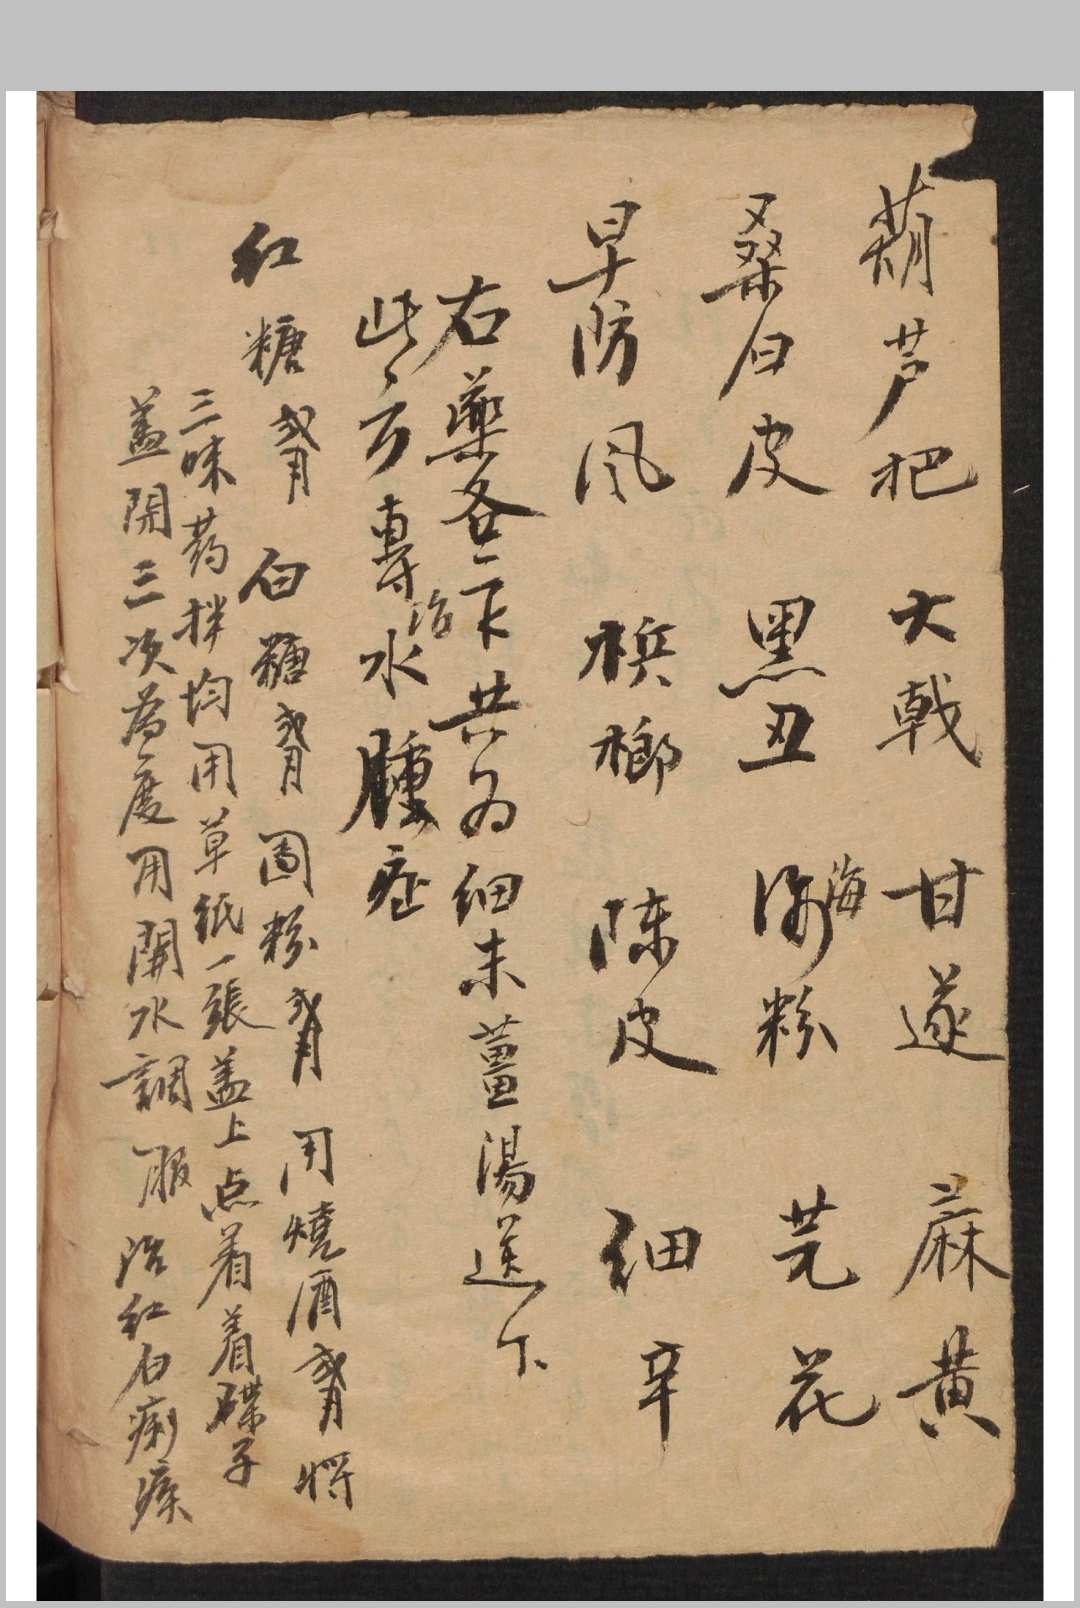 葫芦把 大戟 甘遂 蔴黄
桑白皮 黑丑 海粉 芫花
早防风 梹榔 陈皮 细辛
右藥各一下共为细末薑湯送下
此方專治水腫症
红糖 白糖 粉 用燒酒 将
三味药拌均用草紙一張盖上点着着碟子
盖開三次為度用開水調服治红白痢疾